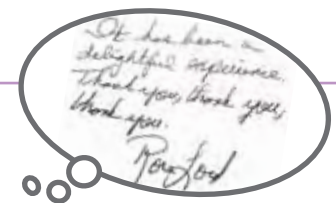 It has been a
delightful experience.
Thank you, thank you,
thank you.